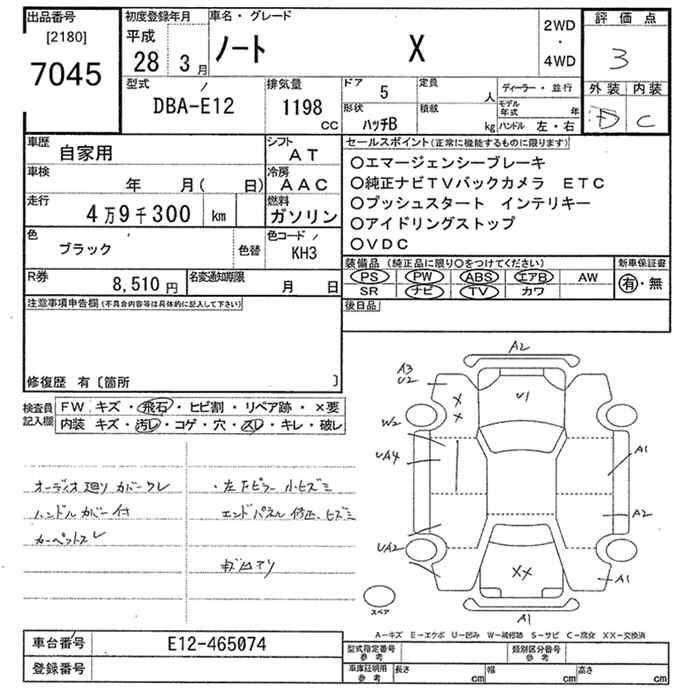 出品番号
[2180]
7045
初度登録年月
平成
28 3月
車名・グレード
ノート X
2WD
・
4WD
評価点
3
外装 内装
D C
型式
DBA-E12
排気量
1198
CC
ドア 5
定員 人
形状
ハッチB
積載 kg
ディーラー・並行
モデル年式 年
ハンドル 左・右
車歴 自家用
シフト AT
車検 年 月( 日)
冷房 AAC
走行 4万9千300 km
燃料 ガソリン
色 ブラック
色替
色コード KH3
R券 8,510円
名変通知期限 月 日
注意事項申告欄 (不具合内容等は具体的に記入して下さい)
修復歴 有〔箇所 〕
セールスポイント(正常に機能するものに限ります)
○エマージェンシーブレーキ
○純正ナビTVバックカメラ ETC
○プッシュスタート インテリキー
○アイドリングストップ
○VDC
装備品 (純正品に限り○をつけてください)
PS PW ABS エアB AW
SR ナビ TV カワ
新車保証書
有・無
後日品
検査員記入欄
FW キズ・飛石・ヒビ割・リペア跡・×要
内装 キズ・汚レ・コゲ・穴・スレ・キレ・破レ
オーディオ廻りカバークレ
ハンドルカバー付
カーペットスレ
・左Fピラー小ヒズミ
エンドパネル修正、ヒズミ
A2
A3
U2
U1
XX
W2
UA4
A1
A2
UA2
XX
A1
A1
スペア
A-キズ E-エクボ U-凹み W-補修跡 S-サビ C-腐食 XX-交換済
車台番号 E12-465074
登録番号
型式指定番号 参考
類別区分番号 参考
車庫証明用 参考
長さ cm
幅 cm
高さ cm